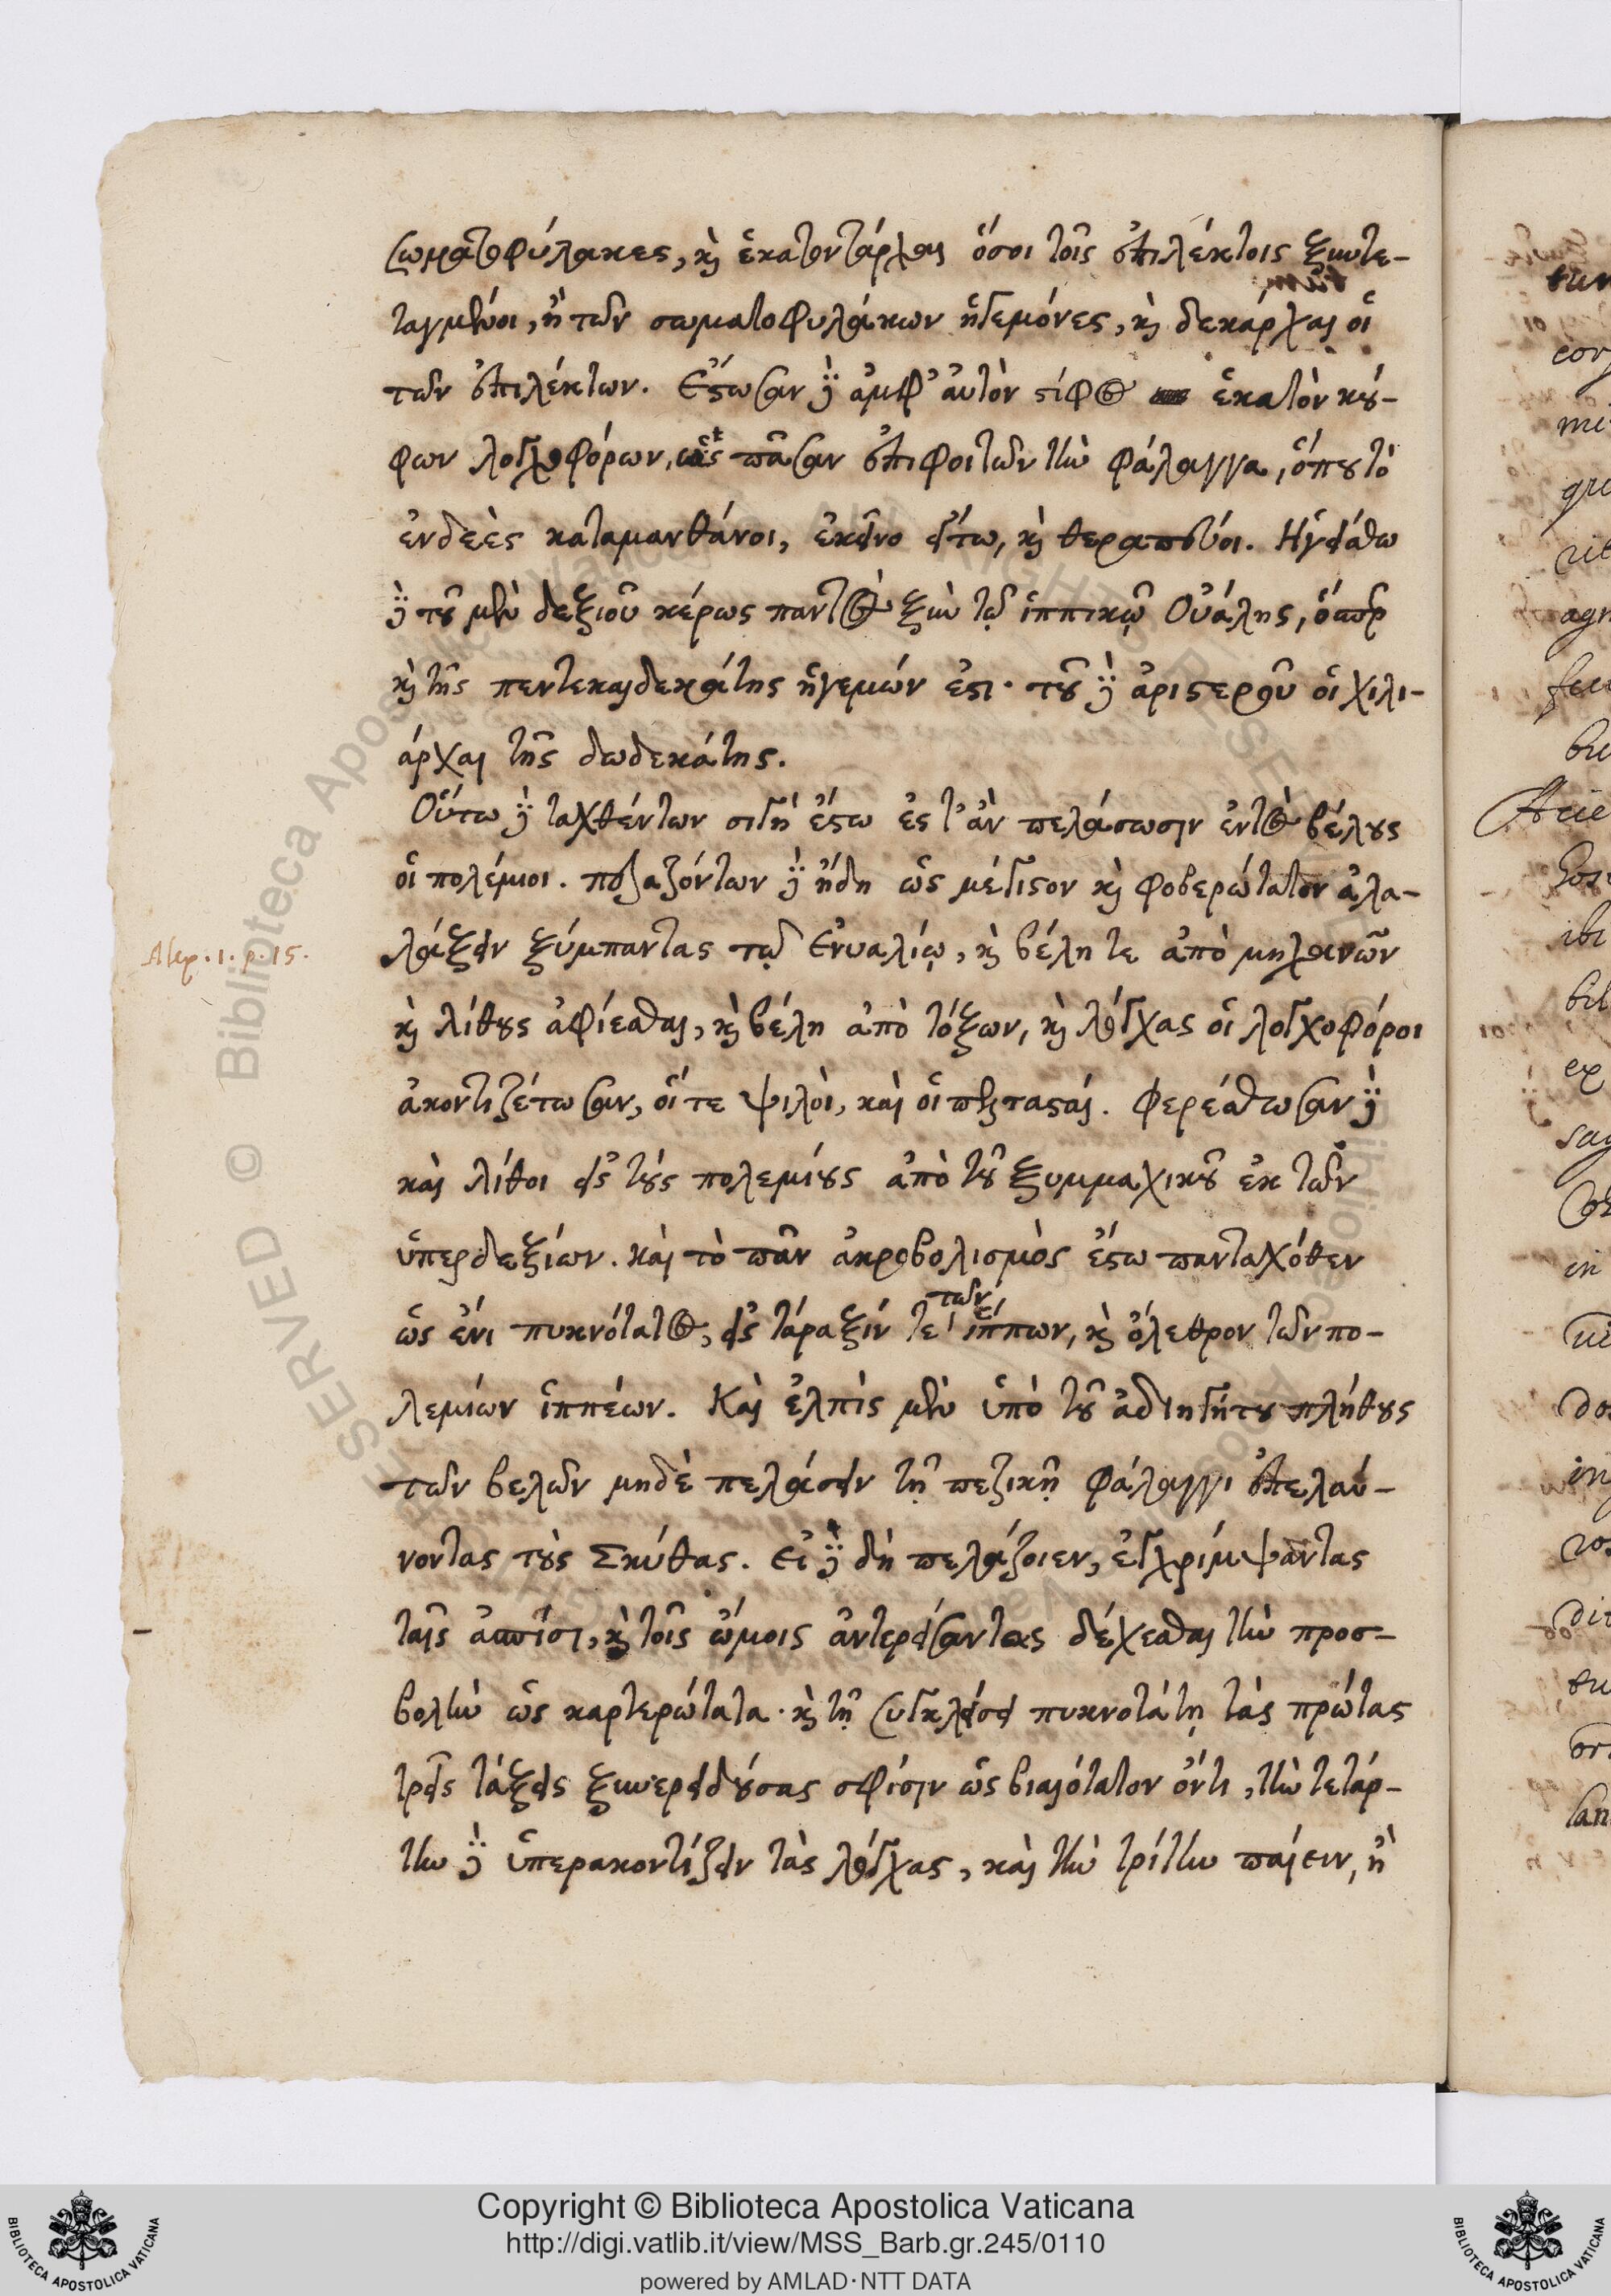 σωματοφύλακες, καὶ ἑκατοντάρχαι ὅσοι τοῖς ἐπιλέκτοις ξυντε-
ταγμένοι, ἢ τῶν σωματοφυλάκων ἡγεμόνες, καὶ δεκάρχαι οἱ
τῶν ἐπιλέκτων. Εστωσαν δὲ ἀμφ' αὐτὸν στίφος ἑκατὸν κού-
φων λογχοφόρων, ὡς πᾶσαν ἐπιφοιτῶν τὴν φάλαγγα, ὅπου τὸ
ἐνδεὲς καταμανθάνοι, ἐκεῖνο εἴτω, καὶ θεραπεύοι. Ηγείσθω
δὲ τοῦ μὲν δεξιοῦ κέρως παντὸς ξὺν τῷ ἱππικῷ Οὐάλης, ὅσπερ
καὶ τῆς πεντεκαιδεκάτης ἡγεμών ἐστι. τοῦ δὲ ἀριστεροῦ οἱ χιλι-
άρχαι τῆς δωδεκάτης.
Οὕτω δὲ ταχθέντων σιγὴ ἔστω ἐς τ' ἂν πελάσωσιν ἐντὸς βέλους
οἱ πολέμιοι. πελαζόντων δὲ ἤδη ὡς μέγιστον καὶ φοβερώτατον ἀλα-
Alex. 1. p. 15.
λάξειν ξύμπαντας τῷ Ενυαλίῳ, καὶ βέλη τε ἀπὸ μηχανῶν
καὶ λίθους ἀφίεσθαι, καὶ βέλη ἀπὸ τόξων, καὶ λόγχας οἱ λογχοφόροι
ἀκοντιζέτωσαν, οἵ τε ψιλοὶ, καὶ οἱ πελτασταί. Φερέσθωσαν δὲ
καὶ λίθοι εἰς τοὺς πολεμίους ἀπὸ τοῦ ξυμμαχικοῦ ἐκ τῶν
ὑπερδεξίων. καὶ τὸ πᾶν ἀκροβολισμὸς ἔστω πανταχόθεν
ὡς ἔνι πυκνότατος, εἰς τάραξίν τε τῶν ἵππων, καὶ ὄλεθρον τῶν πο-
λεμίων ἱππέων. Καὶ ἐλπὶς μὲν ὑπὸ τοῦ ἀδιηγήτου πλήθους
τῶν βελῶν μηδὲ πελάσειν τῇ πεζικῇ φάλαγγι ἐπελαύ-
νοντας τοὺς Σκύθας. Εἰ δὲ δὴ πελάζοιεν, ἐγχρίμψαντας
ταῖς ἀσπίσι, καὶ τοῖς ὤμοις ἀντερείσαντας δέχεσθαι τὴν προσ-
βολὴν ὡς καρτερώτατα. καὶ τῇ συγκλείσει πυκνοτάτῃ τὰς πρώτας
τρεῖς τάξεις ξυνερειδούσας σφίσιν ὡς βιαιότατον ὄντι, τὴν τετάρ-
την δὲ ὑπερακοντίζειν τὰς λόγχας, καὶ τὴν τρίτην παίειν, ἢ
Copyright © Biblioteca Apostolica Vaticana
http://digi.vatlib.it/view/MSS_Barb.gr.245/0110
powered by AMLAD·NTT DATA
BIBLIOTECA APOSTOLICA VATICANA
BIBLIOTECA APOSTOLICA VATICANA